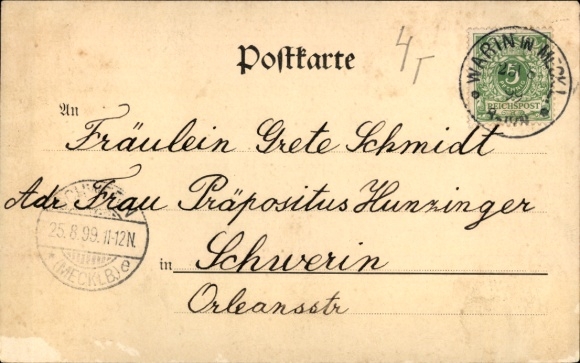 Postkarte
4
WARIN IN MECKL
5
REICHSPOST
An
Fräulein Grete Schmidt
Adr Frau Präpositus Hunzinger
SCHWERIN
25.8.99.11-12N.
(MECKLB)
in Schwerin
Orleansstr